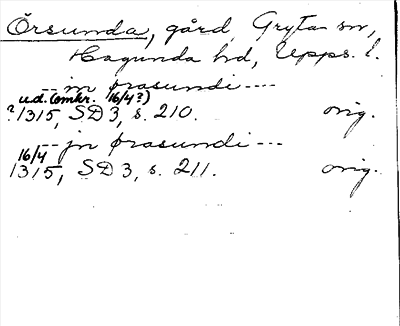 Örsunda, gård, Gryta sn,
Hagunda hd, Upps. l.
-- jn ørasundi ----
u.d. (omkr. 16/4?)
? 1315, SD 3, s. 210. orig.
-- jn ørasundi ---
16/4
1315, SD 3, s. 211. orig.